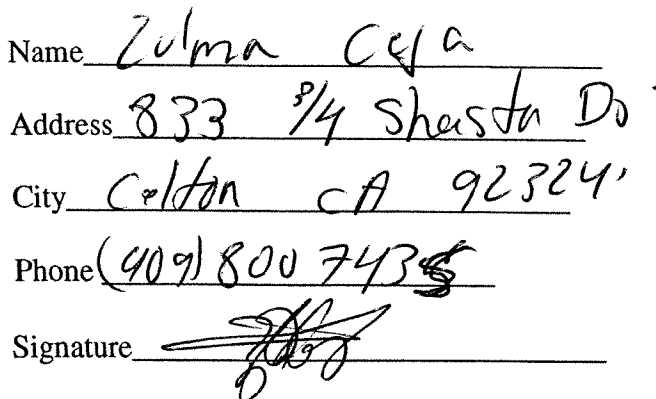 Name Zulma Ceja
Address 833 3/4 Shasta Dr
City Colton CA 92324
Phone (909) 800 743
Signature